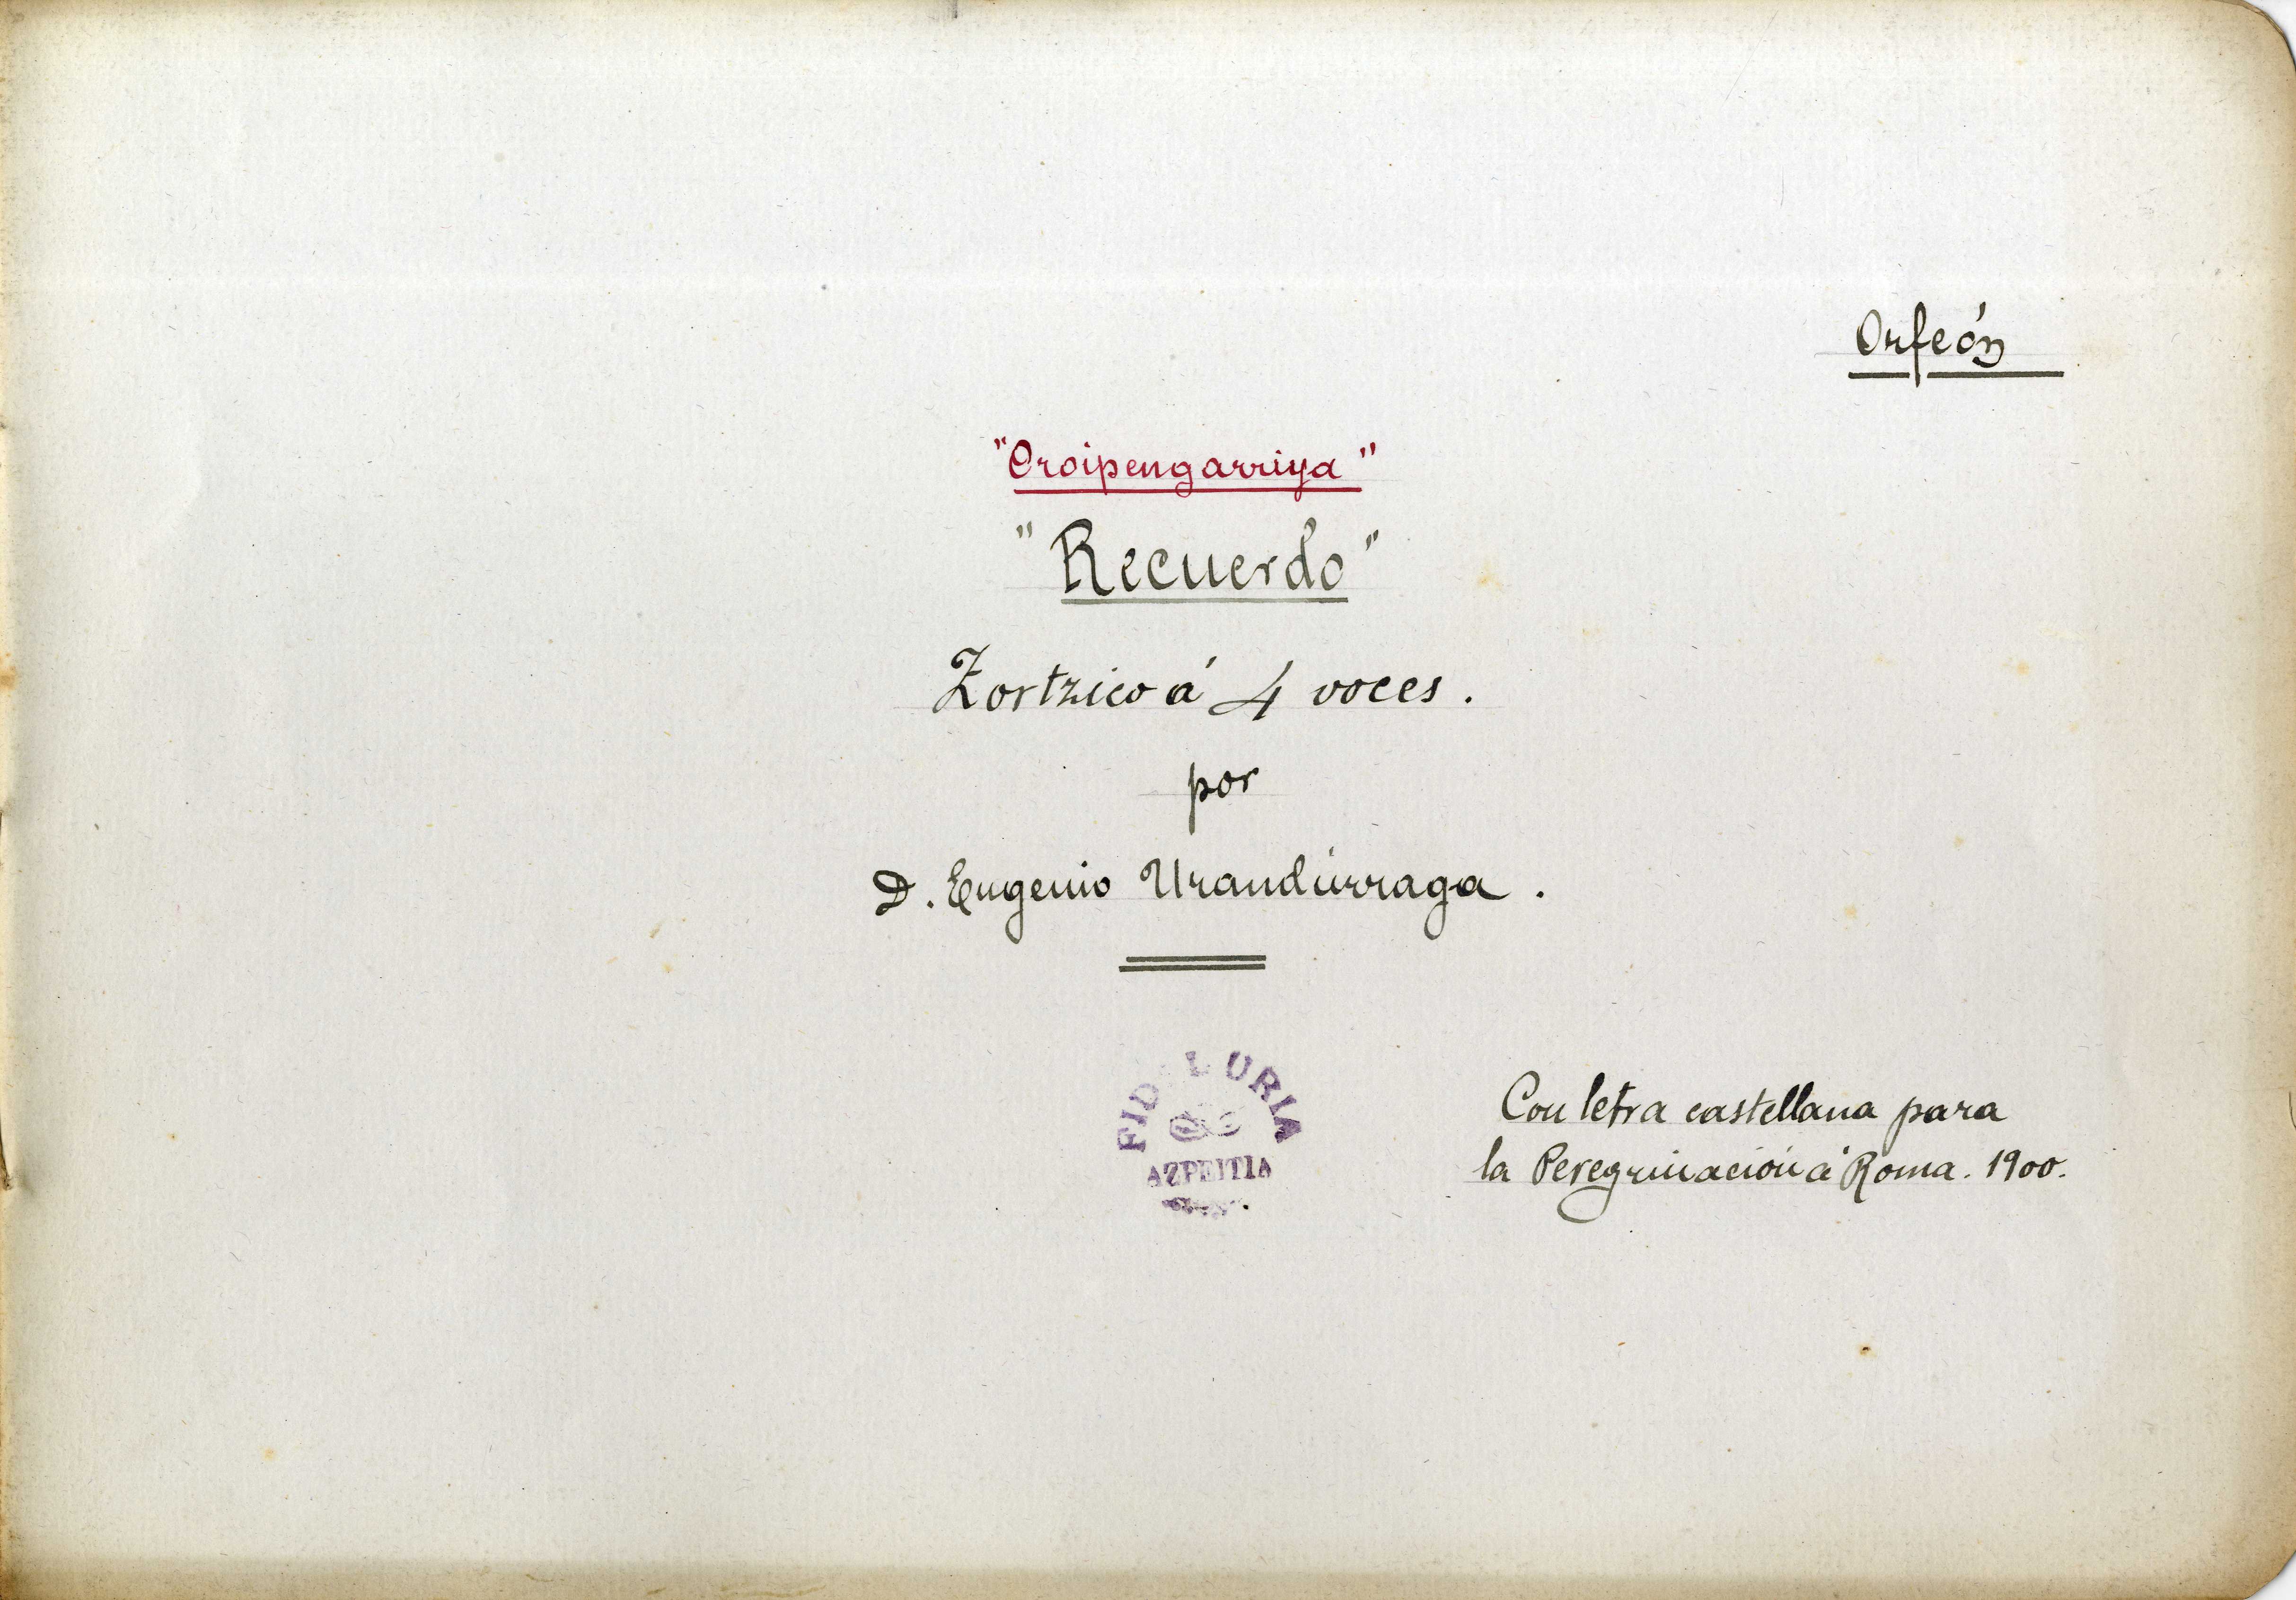 Orfeón
"Oroipengarriya"
"Recuerdo"
Zortzico á 4 voces.
por
D. Eugenio Urandurraga.
URIA
AZPEITIA
Con letra castellana para
la Peregrinación á Roma. 1900.